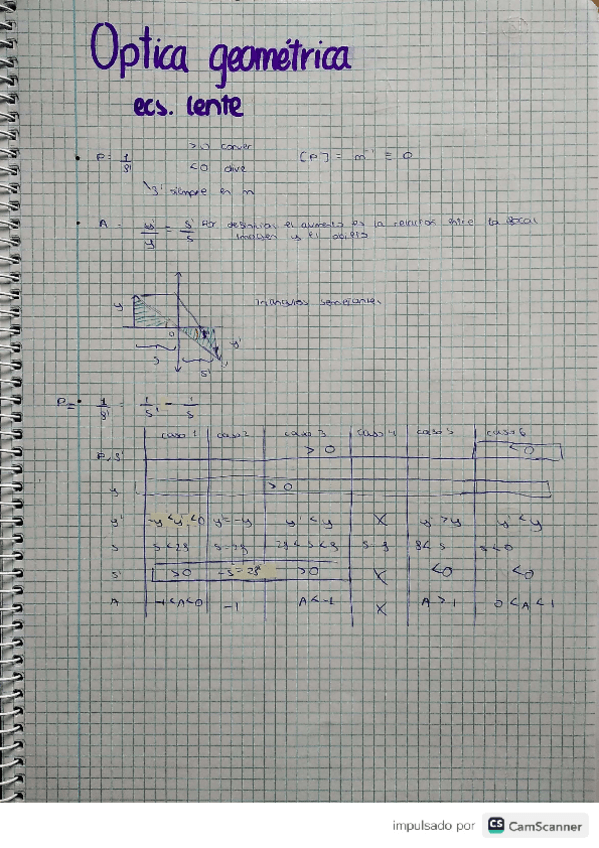 Optica geométrica
ecs. lente
• P = 1/f' >0 conver [P] = m⁻¹ ≡ D
<0 dive
f' siempre en m
• A = y'/y = s'/s Por definicion el aumento es la relacion entre la
imagen y el objeto
y
O
y'
s
s'
triángulos semejantes
P = • 1/f' = 1/s' - 1/s
caso 1 caso 2 caso 3 caso 4 caso 5 caso 6
P, f' >0 <0
y >0
y' -y<y'<0 y=-y y'<y X y'>y y'<y
s s<2f s=2f 2f<s<f s=f f<s s<0
s' >0 -s=2f' >0 X <0 <0
A -1<A<0 -1 A<-1 X A>1 0<A<1
impulsado por CS CamScanner